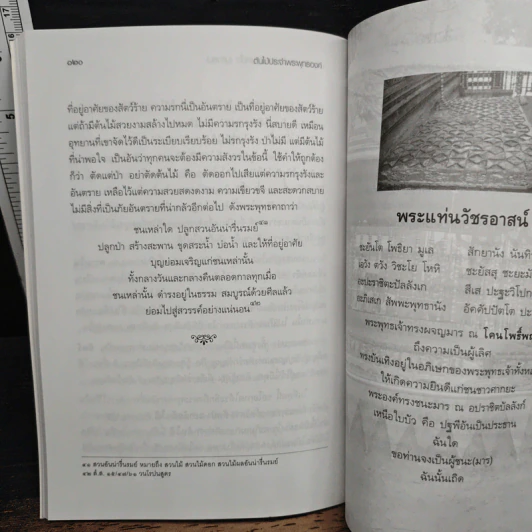 ๑๒๐
ต้นไม้ประจำพระพุทธองค์
ที่อยู่อาศัยของสัตว์ร้าย ความรกนี่เป็นอันตราย เป็นที่อยู่อาศัยของสัตว์ร้าย
แต่ถ้ามีต้นไม้สวยงามสล้างไปหมด ไม่มีความรกรุงรัง นี่สบายดี เหมือน
อุทยานที่เขาจัดไว้ดีเป็นระเบียบเรียบร้อย ไม่รกรุงรัง ป่าไม่มี แต่มีต้นไม้
ที่น่าพอใจ เป็นอันว่าทุกคนจะต้องมีความสังวรในข้อนี้ ใช้คำให้ถูกต้อง
ก็ว่า ตัดแต่ป่า อย่าตัดต้นไม้ คือ ตัดออกไปเสียแต่ความรกรุงรังและ
อันตราย เหลือไว้แต่ความสวยสดงดงาม ความเขียวขจี และสะดวกสบาย
ไม่มีสิ่งที่เป็นภัยอันตรายที่น่ากลัวอีกต่อไป ดังพระพุทธคาถาว่า
ชนเหล่าใด ปลูกสวนอันน่ารื่นรมย์๔๑
ปลูกป่า สร้างสะพาน ขุดสระน้ำ บ่อน้ำ และให้ที่อยู่อาศัย
บุญย่อมเจริญแก่ชนเหล่านั้น
ทั้งกลางวันและกลางคืนตลอดกาลทุกเมื่อ
ชนเหล่านั้น ดำรงอยู่ในธรรม สมบูรณ์ด้วยศีลแล้ว
ย่อมไปสู่สวรรค์อย่างแน่นอน๔๒
๔๑ สวนอันน่ารื่นรมย์ หมายถึง สวนไม้ สวนไม้ดอก สวนไม้ผลอันน่ารื่นรมย์
๔๒ สํ.ส. ๑๕/๔๗/๖๑ วนโรปนสูตร
พระแท่นวัชรอาสน์
ชะยันโต โพธิยา มูเล สักยานัง นันทิ
เอวัง ตวัง วิชะโย โหหิ ชะยัสสุ ชะยะมั
อะปะราชิตะปัลลังเก สีเส ปะฐะวิโปก
อะภิเสเก สัพพะพุทธานัง อัคคัปปัตโต ปะ
พระพุทธเจ้าทรงผจญมาร ณ โคนโพธิ์พฤ
ถึงความเป็นผู้เลิศ
ทรงบันเทิงอยู่ในอภิเษกของพระพุทธเจ้าทั้งห
ให้เกิดความยินดีแก่ชนชาวศากยะ
พระองค์ทรงชนะมาร ณ อปราชิตบัลลังก์
เหนือใบบัว คือ ปฐพีอันเป็นประธาน
ฉันใด
ขอท่านจงเป็นผู้ชนะ(มาร)
ฉันนั้นเถิด